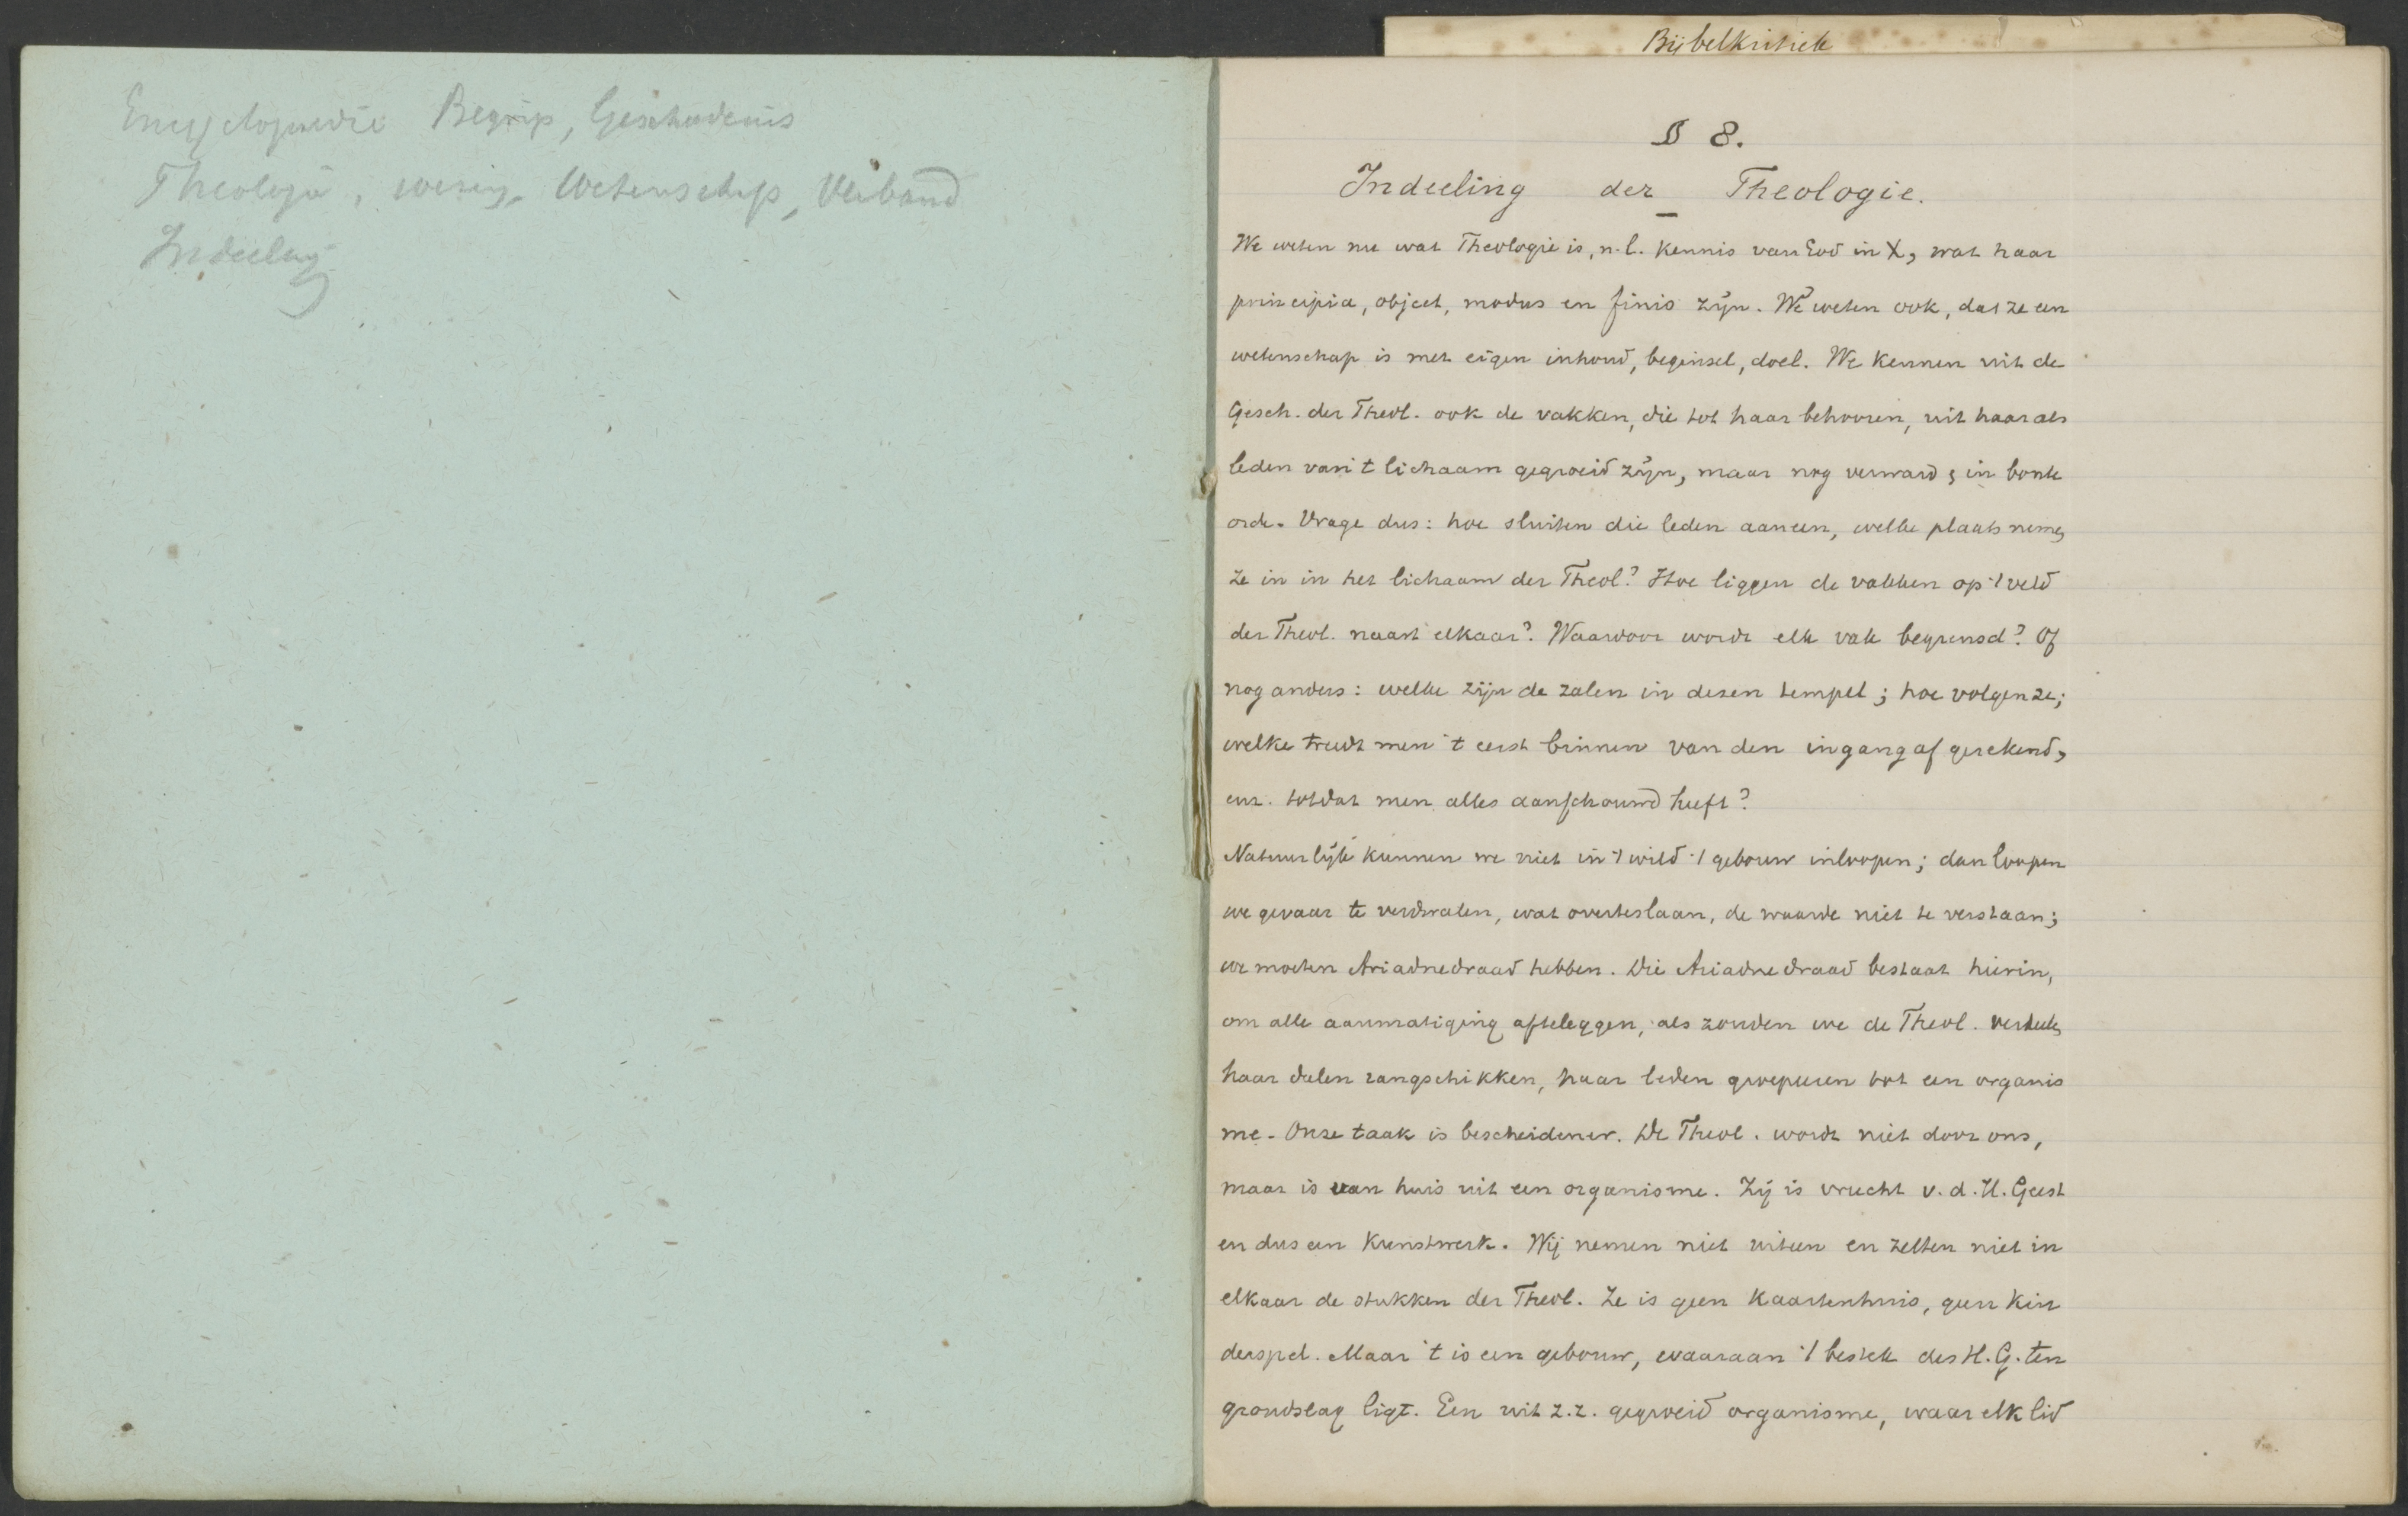 Encyclopaedie Begrip, Geschiedenis
Theologie, wezen, Wetenschap, Verband
Indeeling
Bijbelkritiek
§ 8.
Indeeling der Theologie.
We weten nu wat Theologie is, n.l. kennis van God in X, wat haar
principia, object, modus en finis zijn. We weten ook, dat ze een
wetenschap is met eigen inhoud, beginsel, doel. We kennen uit de
Gesch. der Theol. ook de vakken, die tot haar behooren, uit haar als
leden van 't lichaam gegroeid zijn, maar nog verward & in bonte
orde. Vrage dus: hoe sluiten die leden aaneen, welke plaats nemen
ze in in het lichaam der Theol? Hoe liggen de vakken op 't veld
der Theol. naast elkaar? Waardoor wordt elk vak begrensd? Of
nog anders: welke zijn de zalen in dezen tempel; hoe volgen ze;
welke treedt men 't eerst binnen van den ingang af gerekend,
enz. totdat men alles aanschouwd heeft?
Natuurlijk kunnen we niet in 't wild 't gebouw inloopen; dan loopen
we gevaar te verdwalen, wat overteslaan, de waarde niet te verstaan;
we moeten Ariadnedraad hebben. Die Ariadnedraad bestaat hierin,
om alle aanmatiging afteleggen, als zouden we de Theol. verdeelen
haar deelen rangschikken, haar leden groepeeren tot een organis
me. Onze taak is bescheidener. De Theol. wordt niet door ons,
maar is van huis uit een organisme. Zij is vrucht v. d. H. Geest
en dus een kunstwerk. Wij nemen niet uiteen en zetten niet in
elkaar de stukken der Theol. Ze is geen kaartenhuis, geen kin
derspel. Maar 't is een gebouw, waaraan 't bestek des H. G. ten
grondslag ligt. Een uit z.z. gegroeid organisme, waar elk lid